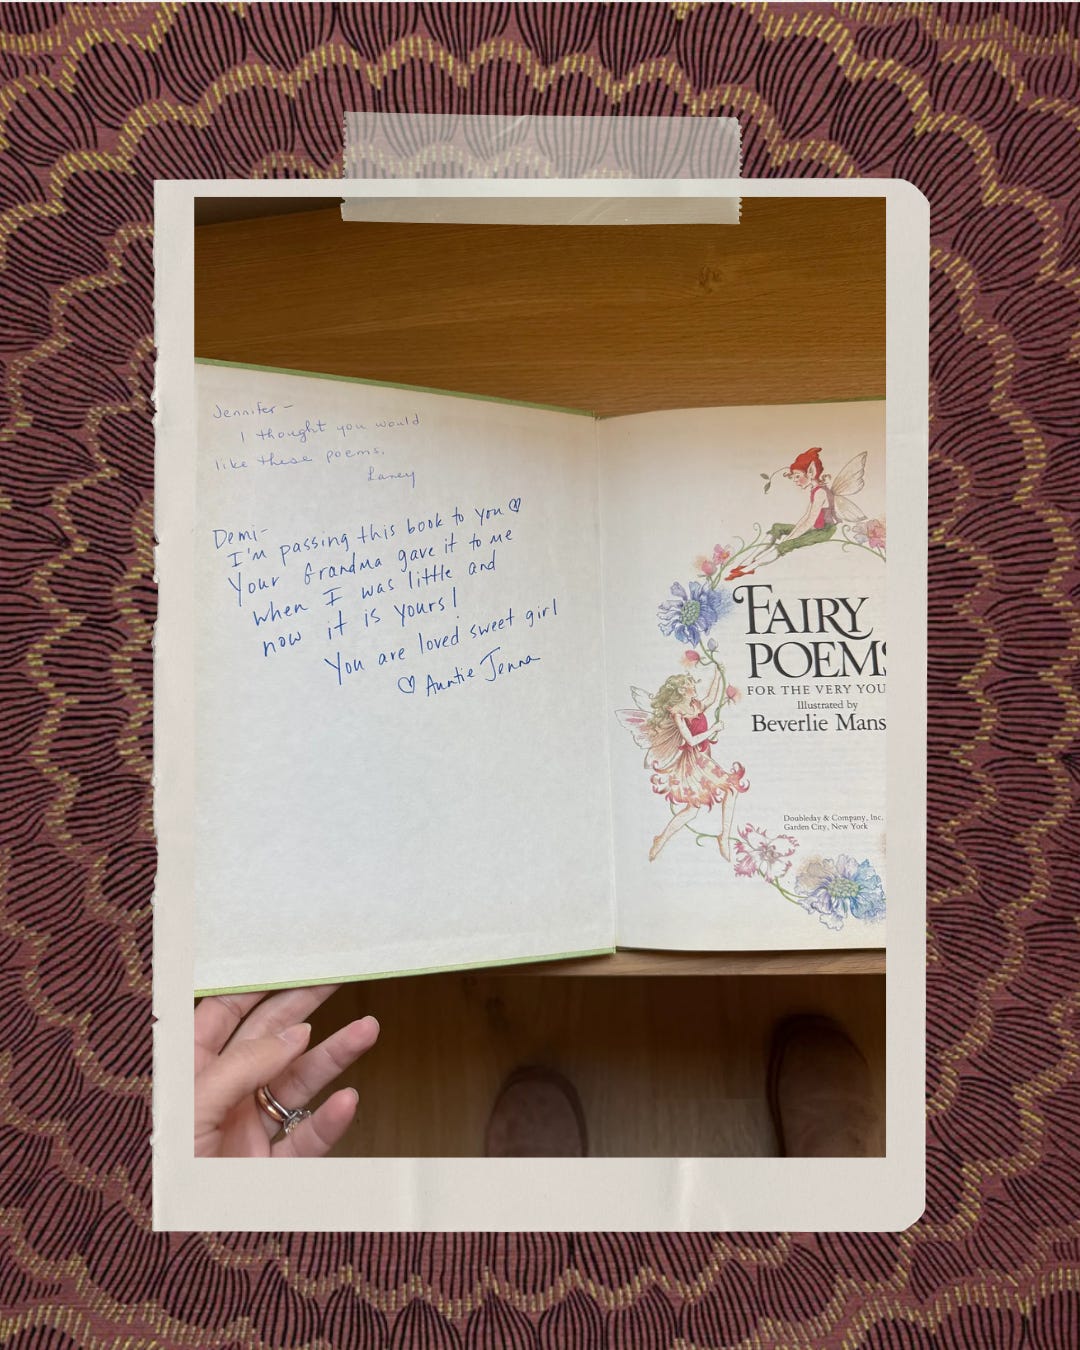 Jennifer –
I thought you would
like these poems.
Laney
Demi–
I'm passing this book to you ♡
Your Grandma gave it to me
when I was little and
now it is yours!
You are loved sweet girl
♡ Auntie Jenna
FAIRY
POEMS
FOR THE VERY YOU
Illustrated by
Beverlie Mans
Doubleday & Company, Inc.
Garden City, New York